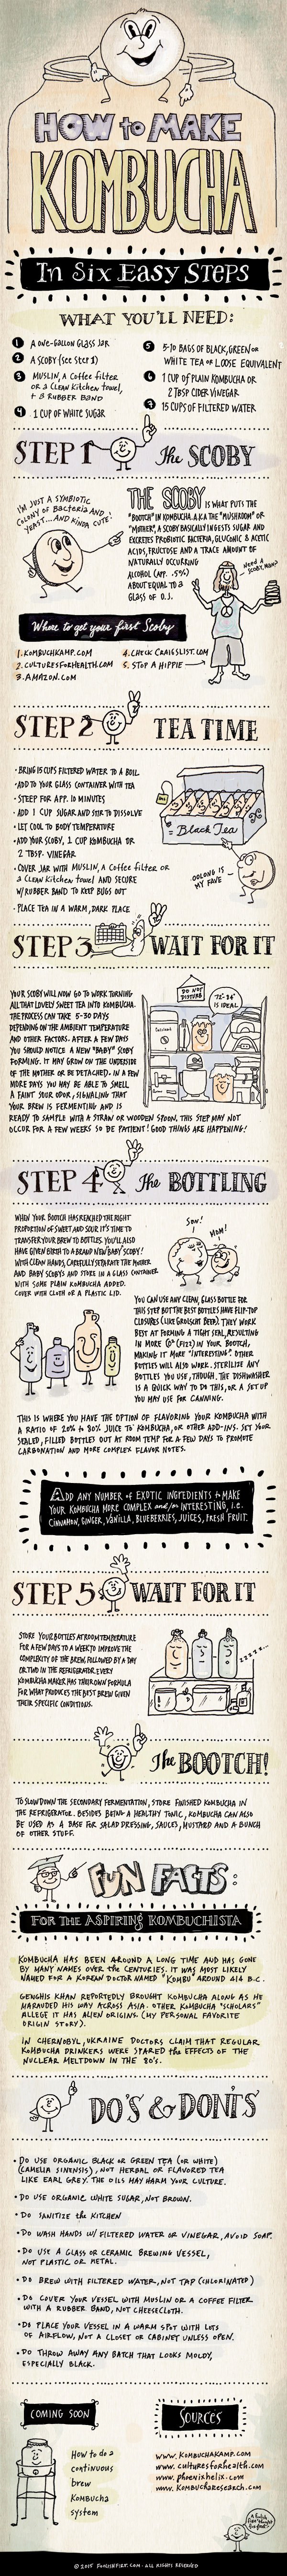 HOW to MAKE
KOMBUCHA
In Six Easy Steps
WHAT YOU'LL NEED:
1 A one-GALLON GLASS JAR
2 A SCOBY (see Step 1)
3 MUSLIN, A Coffee filter
or a Clean Kitchen towel,
+ a RUBBER BAND
4 1 CUP OF WHITE SUGAR
5 5-10 BAGS OF BLACK, GREEN OR
WHITE TEA OR LOOSE EQUIVALENT
6 1 CUP OF PLAIN KOMBUCHA OR
2 TBSP CIDER VINEGAR
7 15 CUPS OF FILTERED WATER
STEP 1 The SCOBY
I'M JUST A SYMBIOTIC
COLONY OF BACTERIA AND
YEAST...AND KINDA CUTE!
THE SCOBY IS WHAT PUTS THE
"BOOTCH" IN KOMBUCHA. A.K.A THE "MUSHROOM" OR
"MOTHER", A SCOBY BASICALLY INGESTS SUGAR AND
EXCRETES PROBIOTIC BACTERIA, GLUCONIC & ACETIC
ACIDS, FRUCTOSE AND A TRACE AMOUNT OF
NATURALLY OCCURING
ALCOHOL (APP. .5%)
ABOUT EQUAL TO A
GLASS OF O.J.
NEED A
SCOBY, MAN?
Where to get your first Scoby
1. KOMBUCHAKAMP.COM
2. CULTURESFORHEALTH.COM
3. AMAZON.COM
4. CHECK CRAIGSLIST.COM
5. STOP A HIPPIE
STEP 2 TEA TIME
• BRING 15 CUPS FILTERED WATER TO A BOIL
• ADD TO YOUR GLASS CONTAINER WITH TEA
• STEEP FOR APP. 10 MINUTES
• ADD 1 CUP SUGAR AND STIR TO DISSOLVE
• LET COOL TO BODY TEMPERATURE
• ADD YOUR SCOBY, 1 CUP KOMBUCHA OR
2 TBSP. VINEGAR
• COVER JAR WITH MUSLIN, A Coffee filter OR
a Clean Kitchen towel AND SECURE
W/RUBBER BAND TO KEEP BUGS OUT
• PLACE TEA IN A WARM, DARK PLACE
Black Tea
OOLONG IS
MY FAVE
STEP 3 WAIT FOR IT
YOUR SCOBY WILL NOW GO TO WORK TURNING
ALL THAT LOVELY SWEET TEA INTO KOMBUCHA.
THE PROCESS CAN TAKE 5-30 DAYS
DEPENDING ON THE AMBIENT TEMPERATURE
AND OTHER FACTORS. AFTER A FEW DAYS
YOU SHOULD NOTICE A NEW "BABY" SCOBY
FORMING. IT MAY GROW ON THE UNDERSIDE
OF THE MOTHER OR BE DETACHED. IN A FEW
MORE DAYS YOU MAY BE ABLE TO SMELL
A FAINT SOUR ODOR, SIGNALING THAT
YOUR BREW IS FERMENTING AND IS
READY TO SAMPLE WITH A STRAW OR WOODEN SPOON. THIS STEP MAY NOT
OCCUR FOR A FEW WEEKS SO BE PATIENT! GOOD THINGS ARE HAPPENING!
DO NOT
DISTURB
72°-84°
IS IDEAL
STEP 4 The BOTTLING
WHEN YOUR BOOTCH HAS REACHED THE RIGHT
PROPORTION OF SWEET AND SOUR IT'S TIME TO
TRANSFER YOUR BREW TO BOTTLES. YOU'LL ALSO
HAVE GIVEN BIRTH TO A BRAND NEW BABY SCOBY!
WITH CLEAN HANDS, CAREFULLY SEPARATE THE MOTHER
AND BABY SCOBYS AND STORE IN A GLASS CONTAINER
WITH SOME PLAIN KOMBUCHA ADDED.
COVER WITH CLOTH OR A PLASTIC LID.
SON!
MOM!
YOU CAN USE ANY CLEAN, GLASS BOTTLE FOR
THIS STEP BUT THE BEST BOTTLES HAVE FLIP-TOP
CLOSURES (LIKE GROLSCH BEER). THEY WORK
BEST AT FORMING A TIGHT SEAL, RESULTING
IN MORE CO² (FIZZ) IN YOUR BOOTCH,
MAKING IT MORE "INTERESTING". OTHER
BOTTLES WILL ALSO WORK. STERILIZE ANY
BOTTLES YOU USE, THOUGH. THE DISHWASHER
IS A QUICK WAY TO DO THIS, OR A SET UP
YOU MAY USE FOR CANNING.
THIS IS WHERE YOU HAVE THE OPTION OF FLAVORING YOUR KOMBUCHA WITH
A RATIO OF 20% to 80% JUICE TO KOMBUCHA, OR OTHER ADD-INS. SET YOUR
SEALED, FILLED BOTTLES OUT AT ROOM TEMP FOR A FEW DAYS TO PROMOTE
CARBONATION AND MORE COMPLEX FLAVOR NOTES.
ADD ANY NUMBER of EXOTIC INGREDIENTS to MAKE
YOUR KOMBUCHA MORE COMPLEX and/or INTERESTING, i.e.
CINNAMON, GINGER, VANILLA, BLUEBERRIES, JUICES, FRESH FRUIT.
STEP 5 WAIT FOR IT
STORE YOUR BOTTLES AT ROOM TEMPERATURE
FOR A FEW DAYS TO A WEEK TO IMPROVE THE
COMPLEXITY OF THE BREW, FOLLOWED BY A DAY
OR TWO IN THE REFRIGERATOR. EVERY
KOMBUCHA MAKER HAS THEIR OWN FORMULA
FOR WHAT PRODUCES THE BEST BREW GIVEN
THEIR SPECIFIC CONDITIONS.
The BOOTCH!
TO SLOW DOWN THE SECONDARY FERMENTATION, STORE FINISHED KOMBUCHA IN
THE REFRIGERATOR. BESIDES BEING A HEALTHY TONIC, KOMBUCHA CAN ALSO
BE USED AS A BASE FOR SALAD DRESSING, SAUCES, MUSTARD AND A BUNCH
OF OTHER STUFF.
FUN FACTS:
FOR THE ASPIRING KOMBUCHISTA
KOMBUCHA HAS BEEN AROUND A LONG TIME AND HAS GONE
BY MANY NAMES OVER the CENTURIES. IT WAS MOST LIKELY
NAMED FOR A KOREAN DOCTOR NAMED "KOMBU" AROUND 414 B.C.
GENGHIS KHAN REPORTEDLY BROUGHT KOMBUCHA ALONG AS HE
MARAUDED HIS WAY ACROSS ASIA. OTHER KOMBUCHA "SCHOLARS"
ALLEGE IT HAS ALIEN ORIGINS. (MY PERSONAL FAVORITE
ORIGIN STORY).
IN CHERNOBYL, UKRAINE DOCTORS CLAIM THAT REGULAR
KOMBUCHA DRINKERS WERE SPARED the EFFECTS OF THE
NUCLEAR MELTDOWN IN THE 80'S.
DO'S & DONT'S
• DO USE ORGANIC BLACK OR GREEN TEA (OR WHITE)
(CAMELIA SINENSIS), NOT HERBAL OR FLAVORED TEA
LIKE EARL GREY. THE OILS MAY HARM YOUR CULTURE.
• DO USE ORGANIC WHITE SUGAR, NOT BROWN.
• DO SANITIZE the KITCHEN
• DO WASH HANDS W/ FILTERED WATER OR VINEGAR, AVOID SOAP.
• DO USE A GLASS OR CERAMIC BREWING VESSEL,
NOT PLASTIC OR METAL.
• DO BREW WITH FILTERED WATER, NOT TAP (CHLORINATED)
• DO COVER YOUR VESSEL WITH MUSLIN OR A COFFEE FILTER
WITH A RUBBER BAND, NOT CHEESECLOTH.
• DO PLACE YOUR VESSEL IN A WARM SPOT WITH LOTS
OF AIRFLOW, NOT A CLOSET OR CABINET UNLESS OPEN.
• DO THROW AWAY ANY BATCH THAT LOOKS MOLDY,
ESPECIALLY BLACK.
COMING SOON
How to do a
continuous
brew
Kombucha
system
SOURCES
www.KOMBUCHAKAMP.com
www.culturesforhealth.com
www.phoenixhelix.com
www.Kombucharesearch.com
© 2015 FOOLISHFIRE.COM. ALL RIGHTS RESERVED